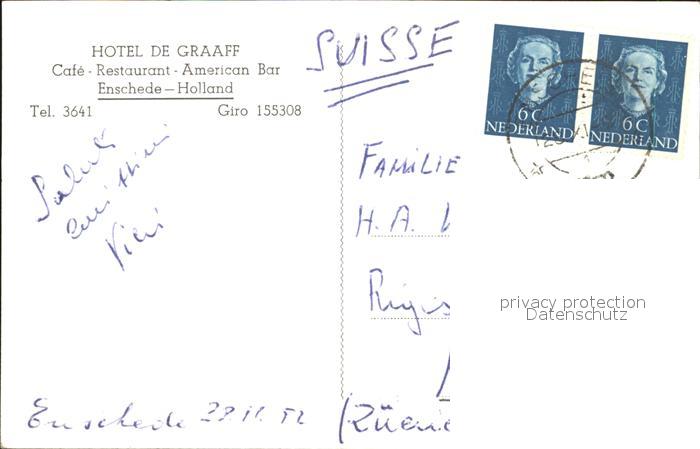 HOTEL DE GRAAFF
Café - Restaurant - American Bar
Enschede — Holland
Tel. 3641 Giro 155308
SUISSE
6 C
NEDERLAND
6 C
NEDERLAND
Saluti
Vici
FAMILIE
H. A.
privacy protection
Datenschutz
Enschede 29.11.52